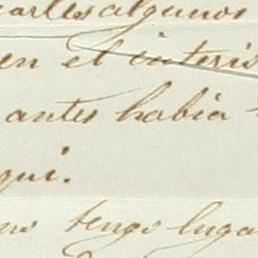 uarles algunos
en el interis
antes habia
qui.
no tengo luga